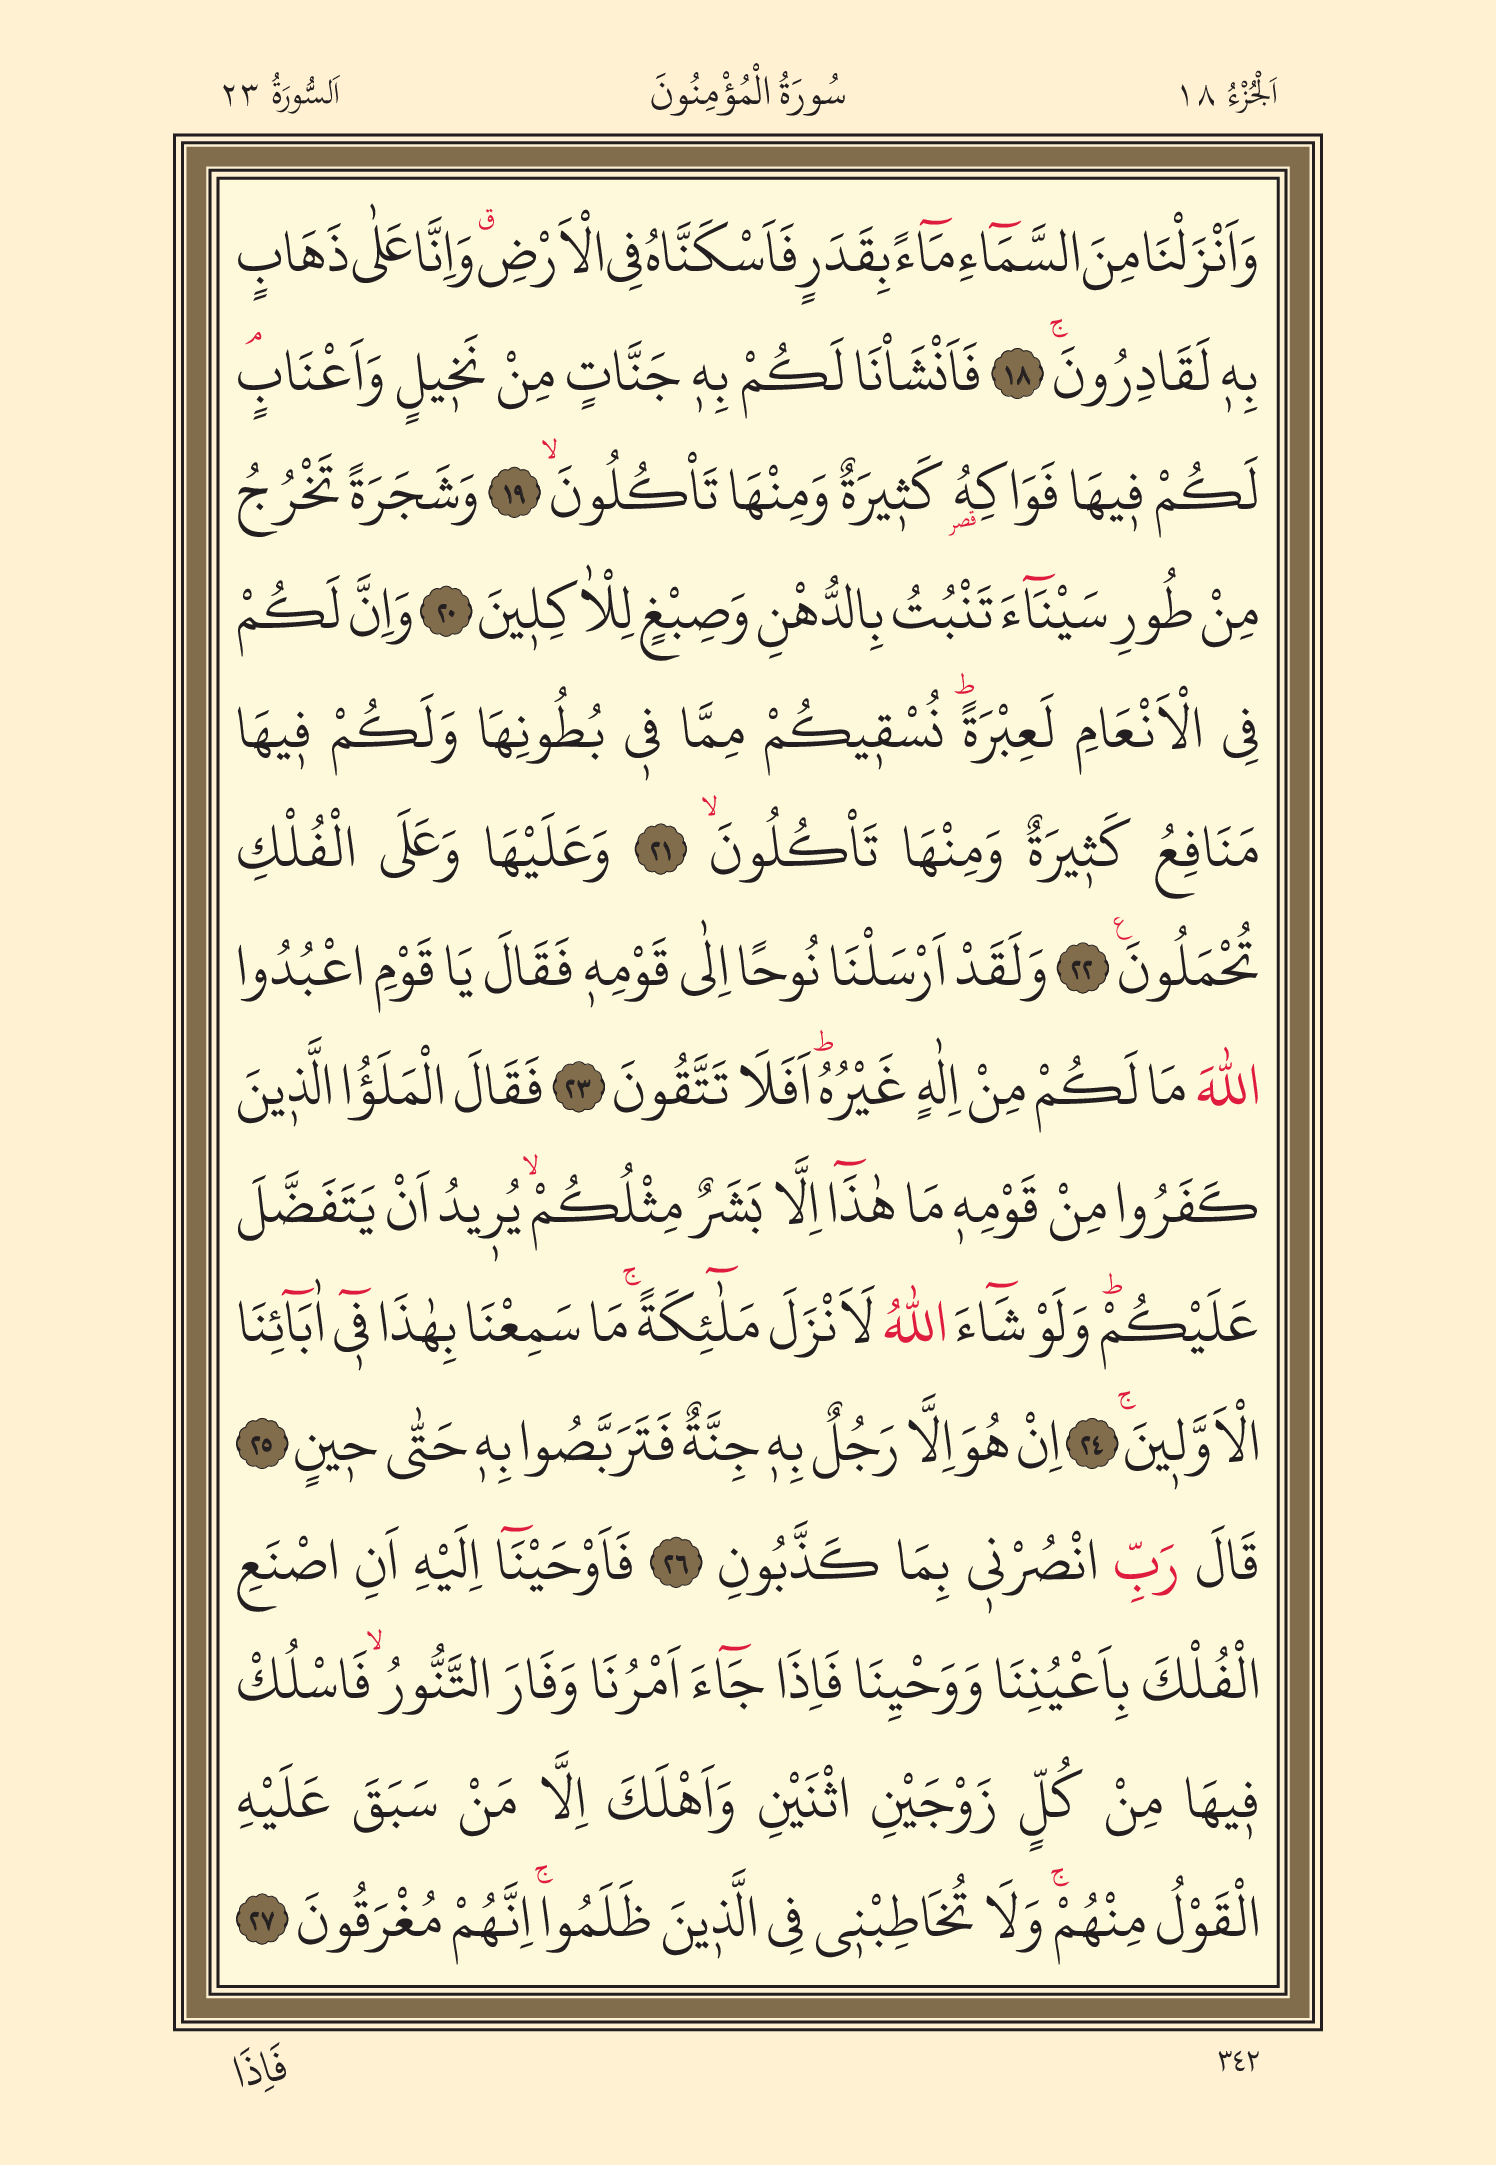 اَلْجُزْءُ ١٨ سُورَةُ الْمُؤْمِنُونَ اَلسُّورَةُ ٢٣
وَاَنْزَلْنَا مِنَ السَّمَٓاءِ مَٓاءً بِقَدَرٍ فَاَسْكَنَّاهُ فِى الْاَرْضِۗ وَاِنَّا عَلٰى ذَهَابٍ
بِه۪ لَقَادِرُونَۚ ﴿١٨﴾ فَاَنْشَاْنَا لَكُمْ بِه۪ جَنَّاتٍ مِنْ نَخ۪يلٍ وَاَعْنَابٍۢ
لَكُمْ ف۪يهَا فَوَاكِهُ قصر كَث۪يرَةٌ وَمِنْهَا تَاْكُلُونَۙ ﴿١٩﴾ وَشَجَرَةً تَخْرُجُ
مِنْ طُورِ سَيْنَٓاءَ تَنْبُتُ بِالدُّهْنِ وَصِبْغٍ لِلْاٰكِل۪ينَ ﴿٢٠﴾ وَاِنَّ لَكُمْ
فِى الْاَنْعَامِ لَعِبْرَةًۜ نُسْق۪يكُمْ مِمَّا ف۪ى بُطُونِهَا وَلَكُمْ ف۪يهَا
مَنَافِعُ كَث۪يرَةٌ وَمِنْهَا تَاْكُلُونَۙ ﴿٢١﴾ وَعَلَيْهَا وَعَلَى الْفُلْكِ
تُحْمَلُونَ ع ﴿٢٢﴾ وَلَقَدْ اَرْسَلْنَا نُوحًا اِلٰى قَوْمِه۪ فَقَالَ يَا قَوْمِ اعْبُدُوا
اللّٰهَ مَا لَكُمْ مِنْ اِلٰهٍ غَيْرُهُۜ اَفَلَا تَتَّقُونَ ﴿٢٣﴾ فَقَالَ الْمَلَؤُا الَّذ۪ينَ
كَفَرُوا مِنْ قَوْمِه۪ مَا هٰذَٓا اِلَّا بَشَرٌ مِثْلُكُمْۙ يُر۪يدُ اَنْ يَتَفَضَّلَ
عَلَيْكُمْۜ وَلَوْ شَٓاءَ اللّٰهُ لَاَنْزَلَ مَلٰٓئِكَةًۚ مَا سَمِعْنَا بِهٰذَا ف۪ٓى اٰبَٓائِنَا
الْاَوَّل۪ينَۚ ﴿٢٤﴾ اِنْ هُوَ اِلَّا رَجُلٌ بِه۪ جِنَّةٌ فَتَرَبَّصُوا بِه۪ حَتّٰى ح۪ينٍ ﴿٢٥﴾
قَالَ رَبِّ انْصُرْن۪ى بِمَا كَذَّبُونِ ﴿٢٦﴾ فَاَوْحَيْنَٓا اِلَيْهِ اَنِ اصْنَعِ
الْفُلْكَ بِاَعْيُنِنَا وَوَحْيِنَا فَاِذَا جَٓاءَ اَمْرُنَا وَفَارَ التَّنُّورُۙ فَاسْلُكْ
ف۪يهَا مِنْ كُلٍّ زَوْجَيْنِ اثْنَيْنِ وَاَهْلَكَ اِلَّا مَنْ سَبَقَ عَلَيْهِ
الْقَوْلُ مِنْهُمْۚ وَلَا تُخَاطِبْن۪ى فِى الَّذ۪ينَ ظَلَمُواۚ اِنَّهُمْ مُغْرَقُونَ ﴿٢٧﴾
٣٤٢ فَاِذَا